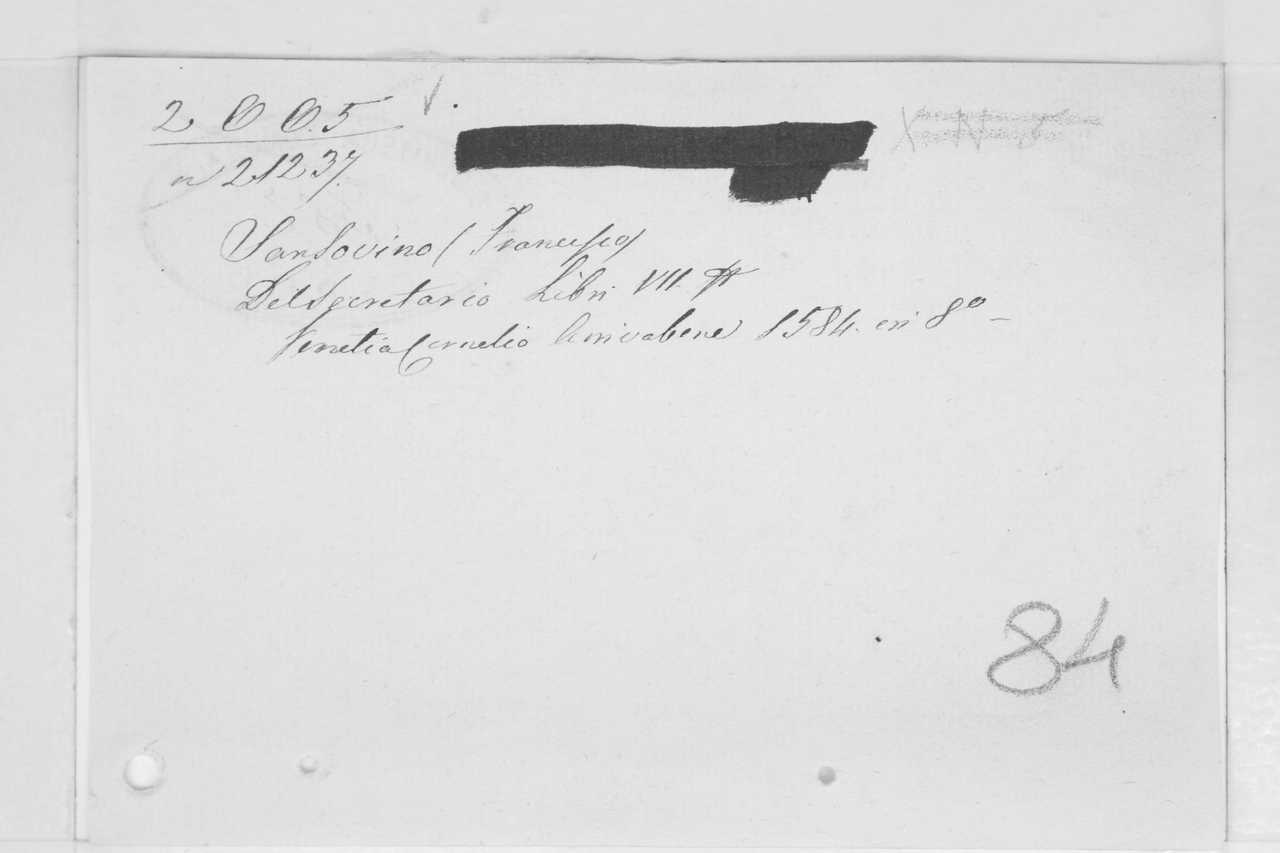 2 0 0.5
n 21237.
Sansovino (Francesco)
Del Secretario Libri VII.
Venetia Cornelio Arrivabene 1584. en 8º
84